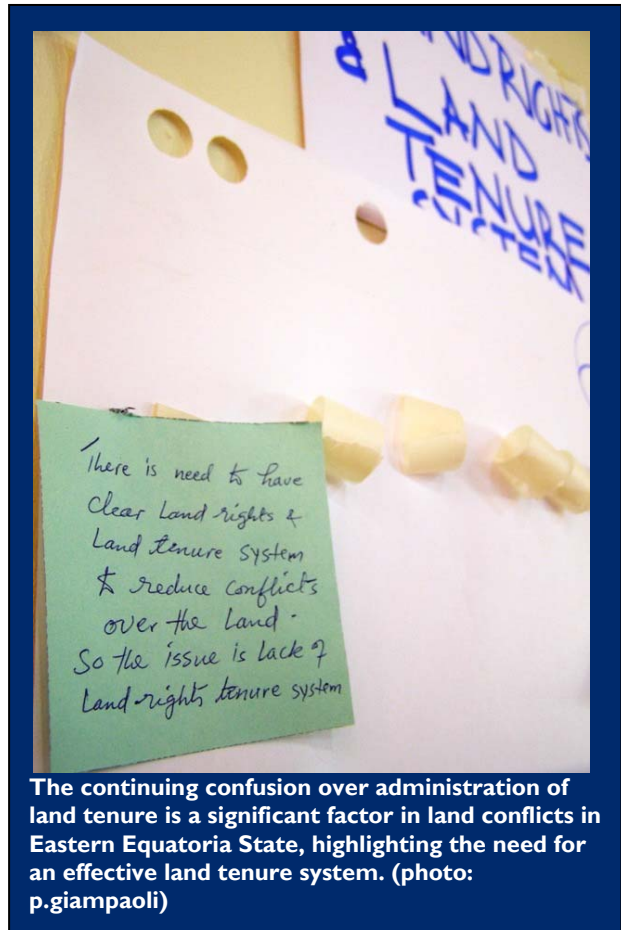 & LAND RIGHTS
LAND
TENURE
SYSTEM
There is need to have
Clear Land rights &
Land tenure system
to reduce conflicts
over the Land.
So the issue is lack of
Land rights tenure system
The continuing confusion over administration of
land tenure is a significant factor in land conflicts in
Eastern Equatoria State, highlighting the need for
an effective land tenure system. (photo:
p.giampaoli)